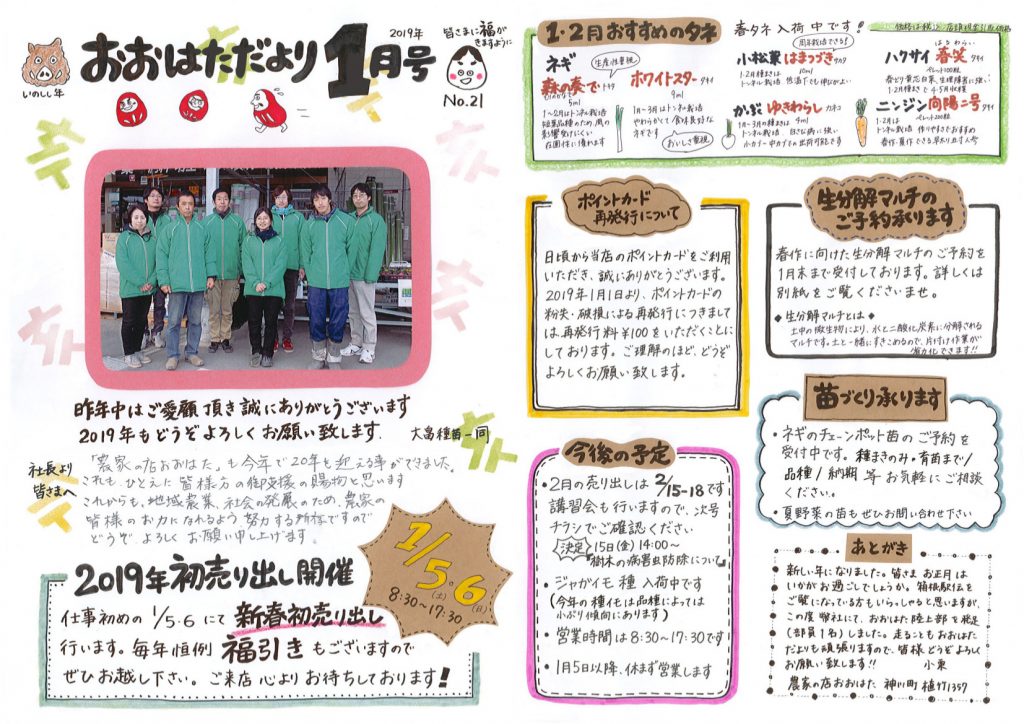 おおはただより 1月号
2019年
皆さまに福が
きますように
No.21
いのしし年
昨年中はご愛顧頂き誠にありがとうございます
2019年もどうぞよろしくお願い致します.
大畠種苗一同
社長より
皆さまへ
「農家の店おおはた」も今年で20年も迎える事ができました。
これも、ひとえに皆様方の御支援の賜物と思います
これからも、地域農業、社会の発展のため、農家の
皆様のお力になれるよう努力する所存ですので
どうぞよろしくお願い申し上げます。
2019年初売り出し開催
1/5・6
(土)(日)
8:30~17:30
仕事初めの 1/5・6 にて 新春初売り出し
行います。毎年恒例 福引き もございますので
ぜひお越し下さい。ご来店心よりお待ちしております!
1・2月おすすめのタネ
春タネ入荷中です!
ネギ
生産性重視
森の奏で トキタ
5ml
1~2月はトンネル栽培
短葉品種のため、風の
影響受けにくい
在圃性に優れます
ホワイトスター タキイ
9ml
1月~3月はトンネル栽培
やわらかくて食味良好な
ネギです
おいしさ重視
周年栽培できる!
小松菜 はまつづき サカタ
10ml
1・2月種まきは
トンネル栽培 低温下でも伸びがよい
かぶ ゆきわらし カネコ
4ml
1月~3月の種まきは
トンネル栽培 白さび病に強い
小カブ~中カブでの出荷可能です
ハクサイ 春笑 タキイ
はるわらい
ペレット100粒
春どり黄芯白菜、生理障害に強い
1・2月種まきで 4-5月収穫
ニンジン 向陽二号 タキイ
ペレット200粒
1・2月は
トンネル栽培 作りやすさでおすすめ
春作・夏作できる早太り五寸人参
ポイントカード
再発行について
日頃から当店のポイントカードをご利用
いただき、誠にありがとうございます。
2019年1月1日より、ポイントカードの
粉失・破損による再発行につきましては
は再発行料¥100をいただくことに
しております。ご理解のほど、どうぞ
よろしくお願い致します。
生分解マルチの
ご予約承ります
春作に向けた生分解マルチのご予約を
1月末まで受付しております。詳しくは
別紙をご覧くださいませ。
◆生分解マルチとは◆
土中の微生物により、水と二酸化炭素に分解される
マルチです。土と一緒にすきこめるので、片付け作業が
省力化できます!!
今後の予定
・2月の売り出しは 2/15-18です
講習会も行いますので、次号
チラシでご確認ください
決定 15日(金) 14:00~
「樹木の病害虫防除について」
・ジャガイモ種 入荷中です
(今年の種イモは品種によっては
小ぶり傾向にあります)
・営業時間は8:30~17:30です
・1月5日以降、休まず営業します
苗づくり承ります
・ネギのチェーンポット苗のご予約を
受付中です。種まきのみ・育苗まで/
品種/納期 等 お気軽にご相談
ください。
・夏野菜の苗もぜひお問い合わせ下さい
あとがき
新しい年になりました。皆さまお正月は
いかがお過ごしでしょうか。箱根駅伝を
ご覧になっている方もいらっしゃると思いますが、
この度弊社にて、おおはた陸上部を発足
(部員1名)しました。走ることもおおはた
だよりも頑張りますので、皆様どうぞよろしく
お願い致します!! 小東
農家の店おおはた 神川町植竹1357